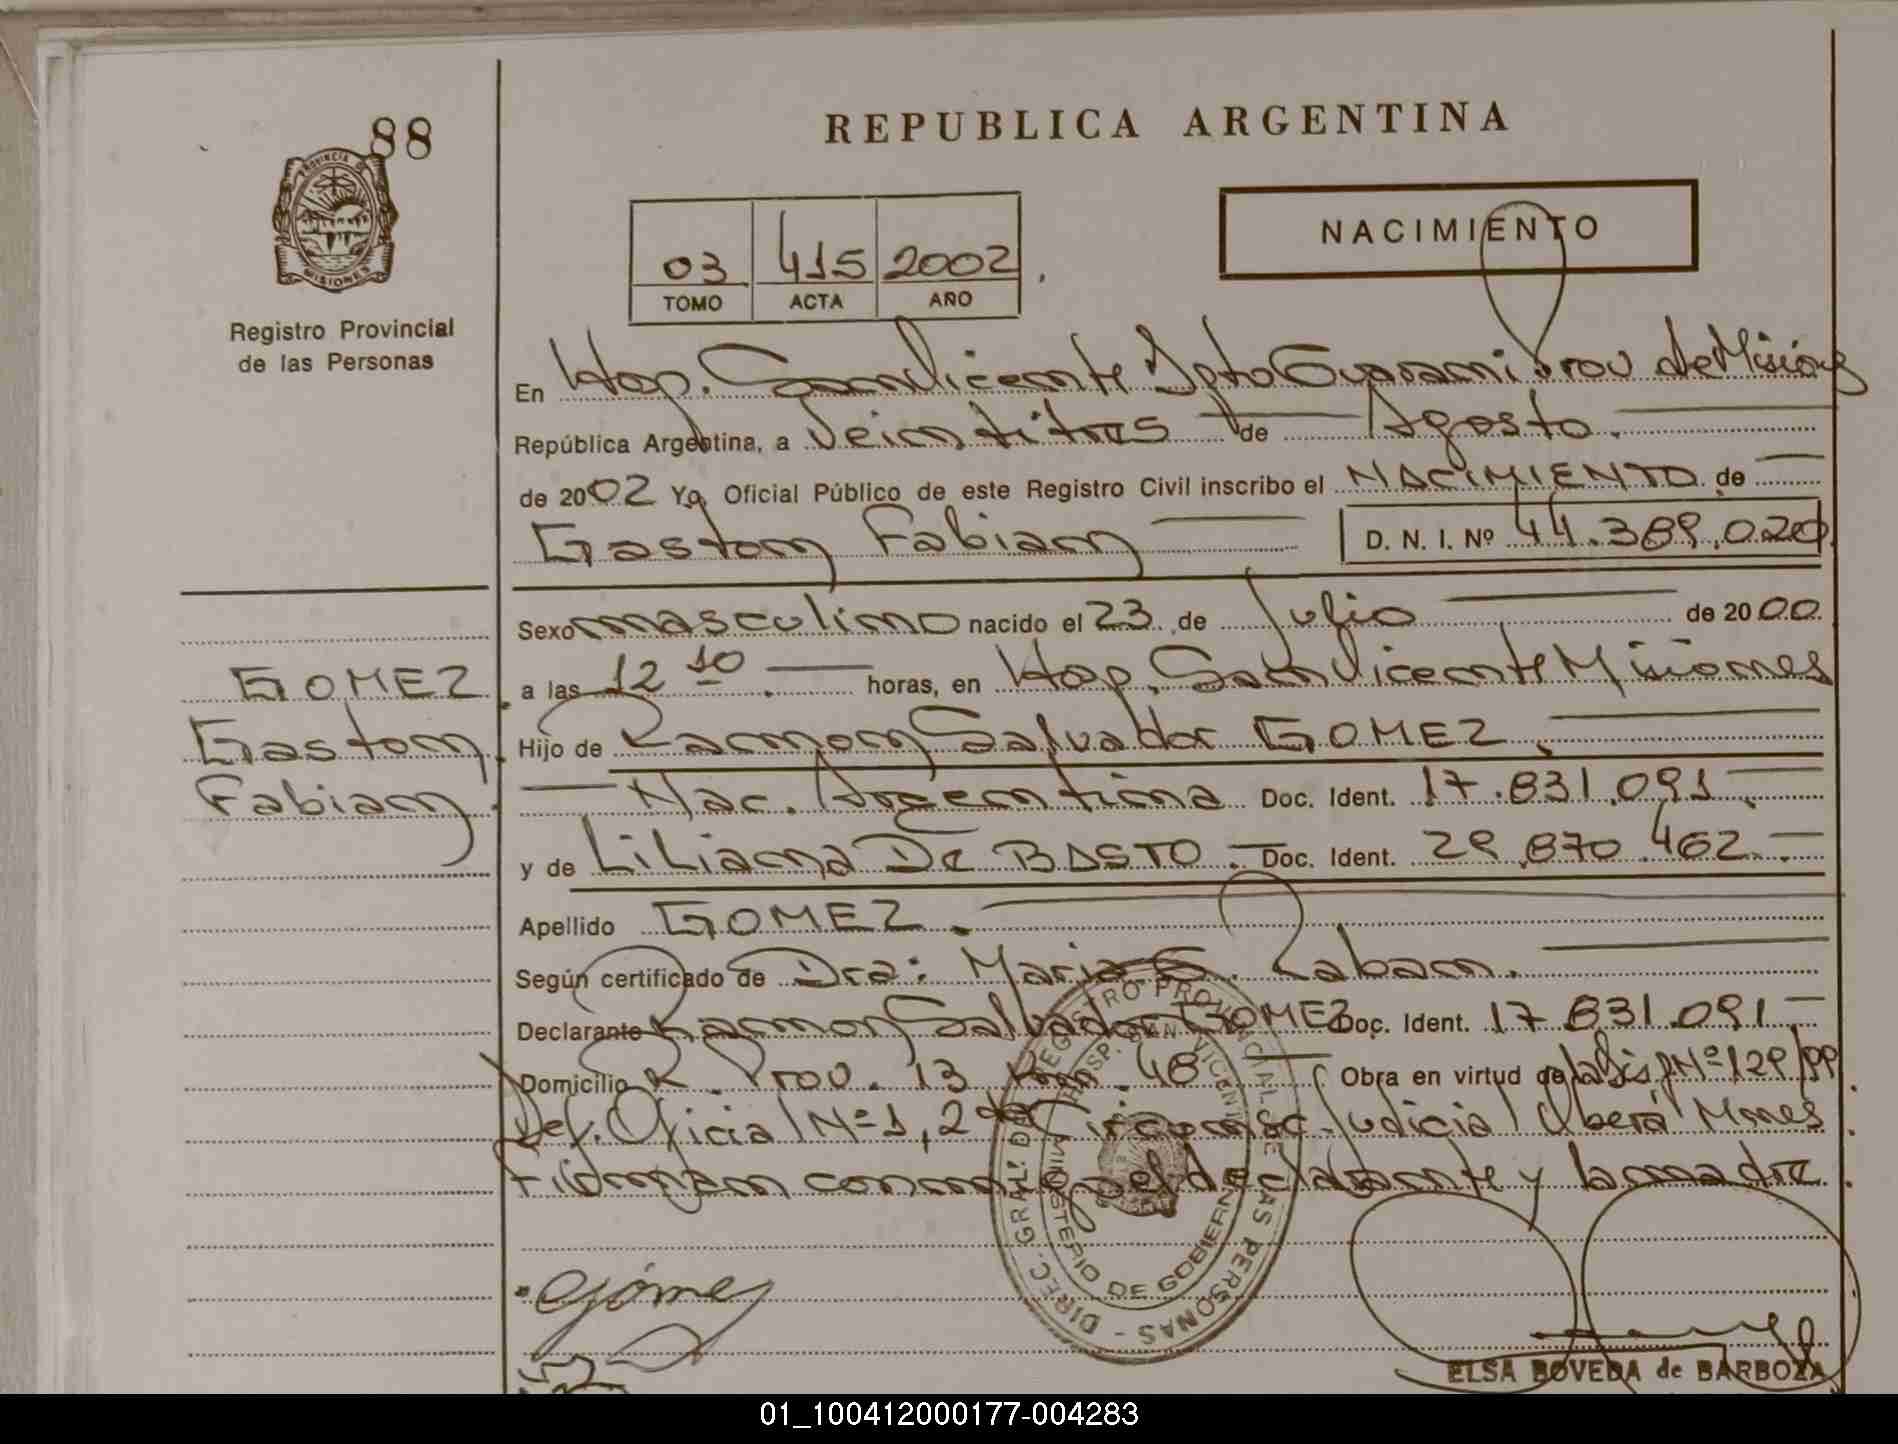 88
PROVINCIA DE
MISIONES
Registro Provincial
de las Personas
REPUBLICA ARGENTINA
03 415 2002
TOMO ACTA AÑO
NACIMIENTO
En Hosp. San Vicente Dpto Guarani Prov de Misiones
República Argentina, a Veintitres de Agosto.
de 2002 Yo Oficial Público de este Registro Civil inscribo el NACIMIENTO de
Gaston Fabian D. N. I. Nº 44.389.020
Sexo masculino nacido el 23 de Julio de 2000
GOMEZ
Gaston
Fabian
a las 12 10. horas, en Hosp. San Vicente Misiones
Hijo de Ramon Salvador GOMEZ.
Nac. Argentina Doc. Ident. 17.831.091.
y de Liliana De BASTO. Doc. Ident. 29.870.462.
Apellido GOMEZ.
Según certificado de Dra: Maria G. Laban.
Declarante Ramon Salvador GOMEZ Doc. Ident. 17.831.091.
Domicilio R. Prov. 13 Km. 48 Obra en virtud de la Disp Nº 129/99
Def. Oficial Nº 1, 2da Circunsc. Judicial Oberá Mnes
Firman conmigo el declarante y la madre
DIREC. GRAL. DEL REGISTRO PROVINCIAL DE LAS PERSONAS
HOSP. SAN VICENTE
MINISTERIO DE GOBIERNO
Gómez
ELSA BOVEDA de BARBOZA
01_100412000177-004283